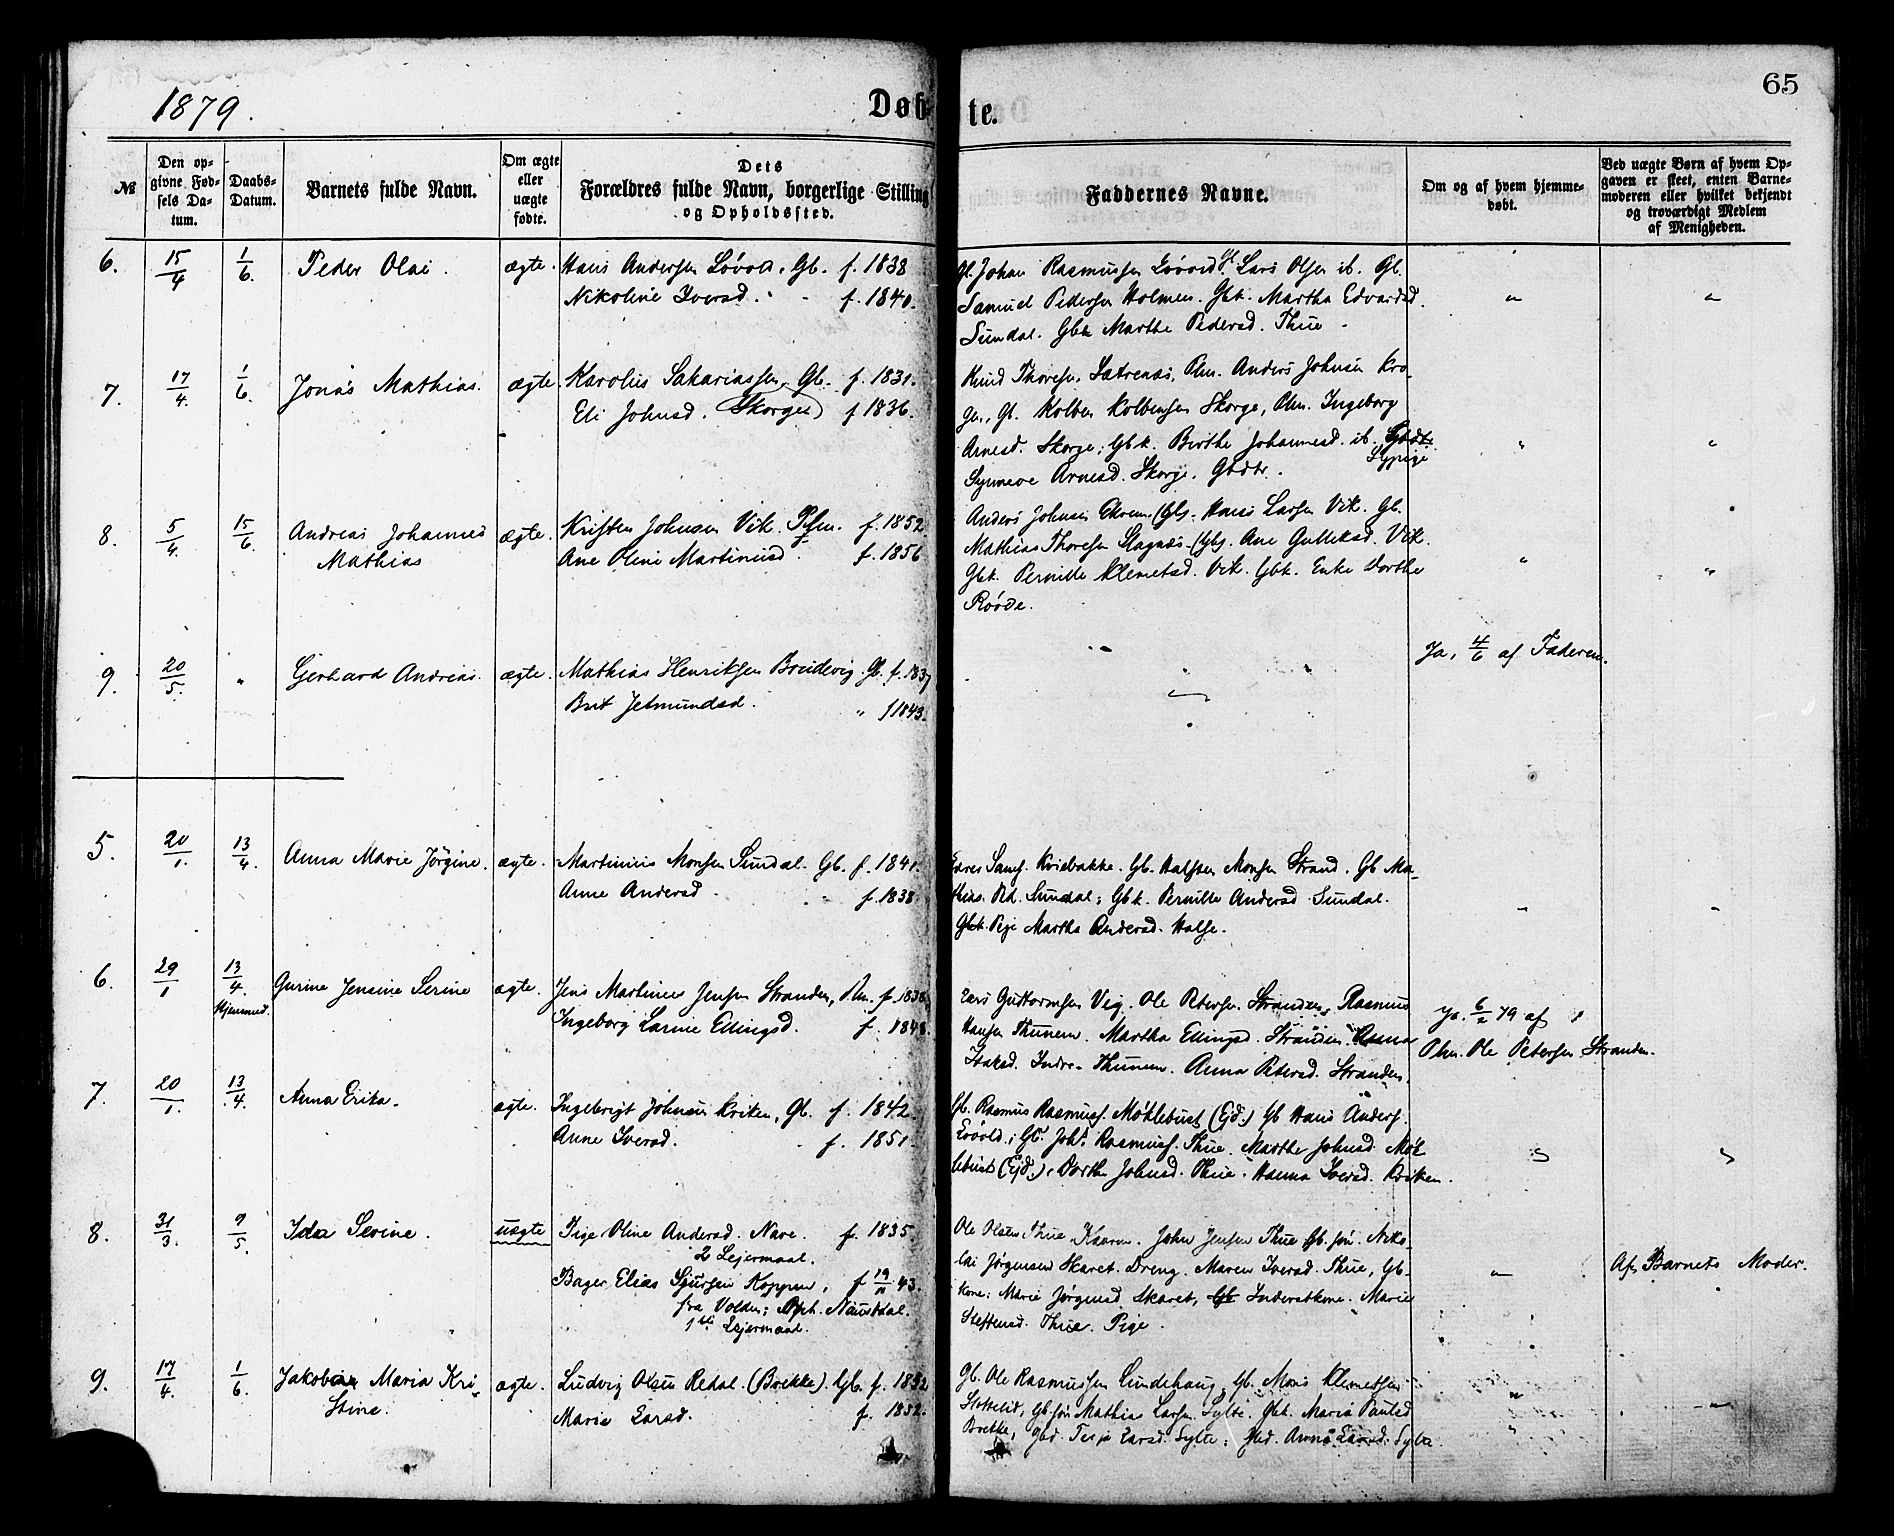 1879.
Døb-
te.
65
№
Den op-
givne Fød-
sels Da-
tum.
Daabs-
Datum.
Barnets fulde Navn.
Om ægte
eller
uægte
fødte.
Dets
Forældres fulde Navn, borgerlige Stilling
og Opholdssted.
Faddernes Navne.
Om og af hvem hjemme-
døbt.
Ved uægte Børn af hvem Op-
gaven er skeet, enten Barne-
moderen eller hvilket bekjendt
og troværdigt Medlem
af Menigheden.
6. 15/4 1/6. Peder Olai. ægte. Hans Andersen Løvold. Gb. f. 1838
Nikoline Iversd. f. 1840.
Gb. Johan Rasmussen Løvold, Gb. Lars Olsen ib. Gb.
Samuel Pedersen Holmen. Gbk. Martha Edvardsd.
Sundal. Gbk. Marthe Pedersd. Thue
7. 17/4. 1/6. Jonas Mathias. ægte Karolus Sakariassen, Gb. f. 1831.
Eli Johnsd. Skorgen f. 1836.
Knud Thoresen, Sætrenæs, Plm. Anders Johnsen Kro-
gen, Gb. Kolben Kolbensen Skorge, Plm. Ingeborg
Arnesd. Skorge; Gbk. Birthe Johannesd. ib. Gbdtr.
Synneve Arnesd. Skorge. Gbdtr.
8. 5/4. 15/6. Andreas Johannes
Mathias
ægte. Kristen Johnsen Vik. f. 1852
Ane Oline Martinusd. f. 1856
Anders Johnsen Ekrem (Gb). Hans Larsen Vik. Gb.
Mathias Thoresen Slagnæs (Gb). Ane Gulleksd. Vik.
Gbk. Pernille Klemetsd. Vik. Gbk. Enke Dorthe
Røvde.
9. 20/5. " Gerhard Andreas. ægte. Mathias Henriksen Breidevig. Gb. f. 1837
Brit Jetmundsd. " f 1843.
Ja, 4/6 af Faderen.
5. 20/1. 13/4. Anna Marie Jørgine. ægte. Martinus Monsen Sundal. Gb. f. 1841.
Anne Andersd. f. 1838
Kviebakke. Gb. Halsten Monsen Strand. Gb Ma-
thias Sundal; Gbk. Pernille Andersd Sundal.
Gbk. Pige Martha Andersd. Halse.
6. 29/1 13/4. Gurine Jensine Serine ægte. Jens Martinus Jensen Stranden, f. 1838
Hjemmed.
Ingeborg Larine Ellingsd. f. 1848.
Lars Guttormsen Veg. Ole Petersen Stranden, Rasmus
Hansen Thunem. Martha Ellingsd. Stranden. Anna
Isaksd. Indre-Thunem. Anna Petersd. Stranden.
Ja. 6/2 79 af
Plm. Ole Petersen Stranden.
7. 20/1. 13/4. Anna Erika. ægte. Ingebrigt Johnsen Kviken, Gb. f. 1842.
Anne Iversd. f. 1851.
Gb. Rasmus Rasmuss. Møklebust (Ejd.) Gb Hans Anders.
Løvold; Gb. Joh. Rasmuss. Thue. Marthe Johnsd. Møk
lebust (Ejd.), Dorthe Johnsd. Thue. Hanna Iversd. Kviken.
8. 31/3. 9/5. Ida Serine. uægte Pige Oline Andersd. Nave. f. 1835.
2 Lejermaal.
Bager Elias Sjursen Koppen, f 19/11 43.
fra Volden; Oph. Naustdal.
1ste Lejermaal.
Ole Olsen Thue, Kaarm. John Jensen Thue Gb. søn. Niko-
lai Jørgensen Skaret. Dreng. Maren Iversd. Thue, Gb-
kone; Marie Jørgensd. Skaret, Inderstkone. Marie
Steffensd. Thue. Pige.
Af Barnets Moder.
9. 17/4. 1/6. Jakobine Maria Kri-
stine.
ægte. Ludvig Olsen Redal. (Brekke) Gb. f. 1852
Marie Larsd. f. 1852.
Gb. Ole Rasmussen Lindehaug, Gb. Mons Klemetsen
Stokkelid, Gb. søn Mathias Larsen Sylte. Gbk. Maria Paulsd
Brekke, Larsd. Sylte; Anne Larsd. Sylte